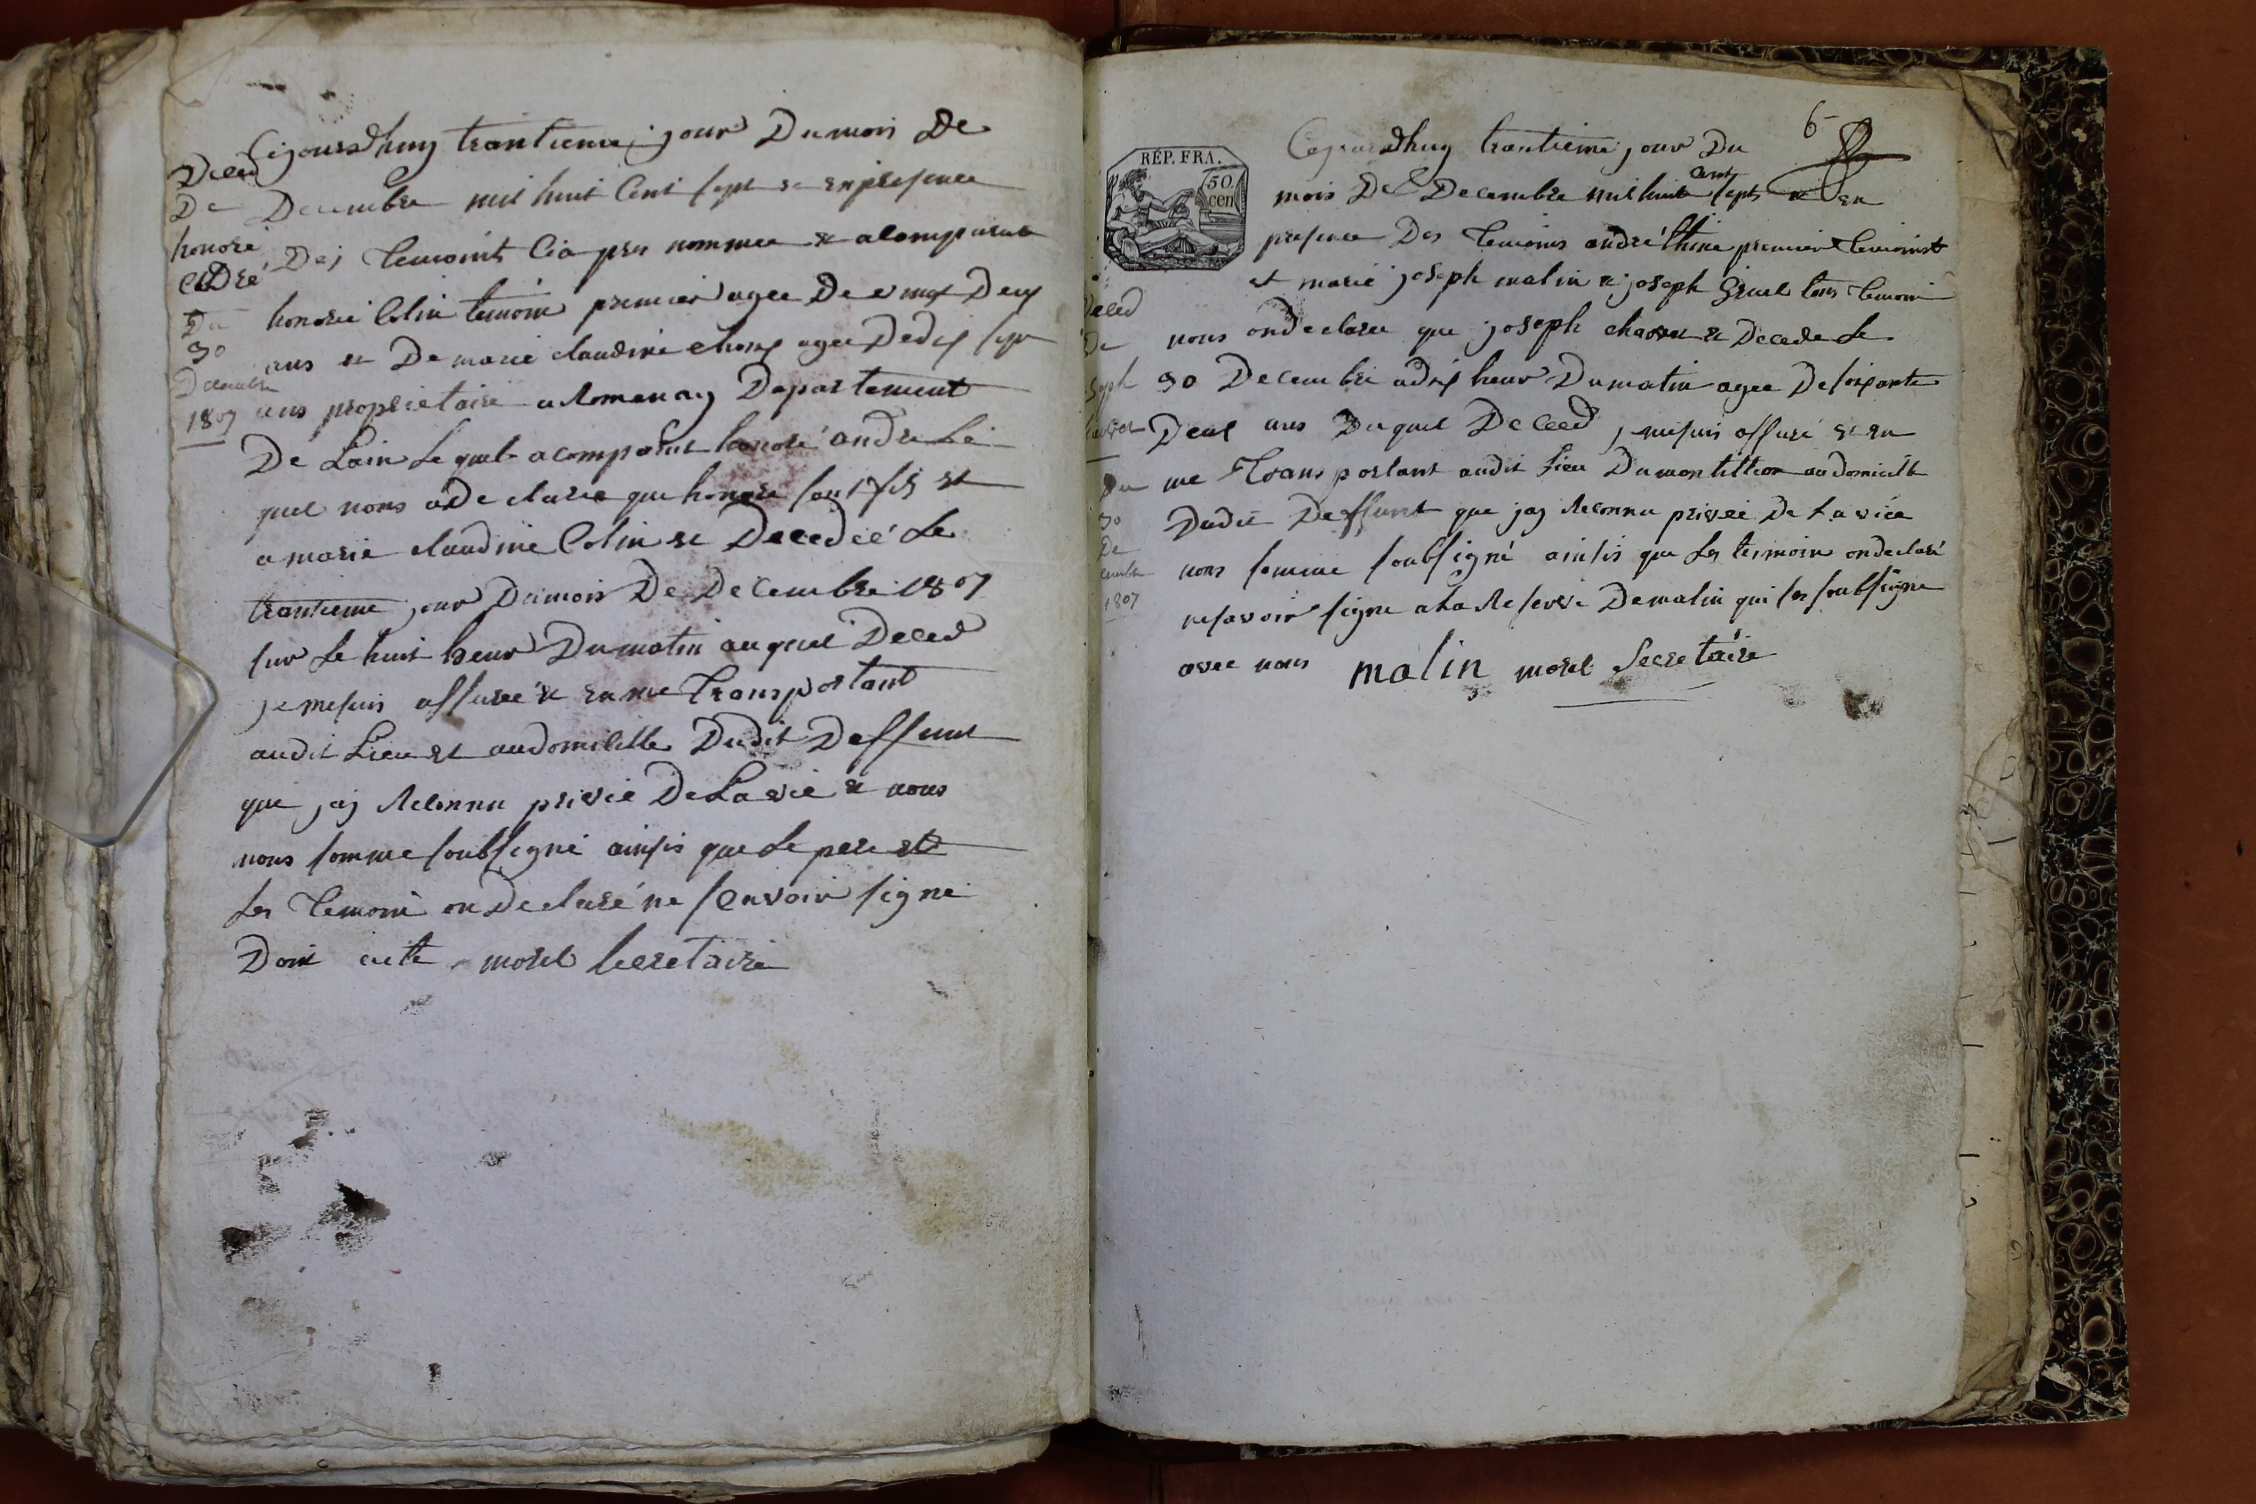 Cejourdhuy trantieme jour Du mois De
Deced
De
honoré
André
Du
30
Decembre
1807
Decembre mil huit Cent sept et en presence
Des temoints Cia pres nommee et a Comparut
honoré Colin temoin premier agee De vingt Deux
ans et De marie claudine agee Dedix sept
ans proprietaire a Romenay Departement
De Lain Le quel a comparut honoré andre Le
quel nous a De claree que honore son fils et
a marie claudine Colin et Decedéé Le
trantieme jour Dumois De Decembre 1807
sur Le huit heur Dumatin au quel Deced
je me suis assuree et en me Transportant
audit Lieu et audomicille Dudit Deffunt
que jaj Reconnu privée De La vie et nous
nous somme soubsigné ainsis que Le pere et
Les temoin on Declaré ne scavoir signé
Dont acte morel secretaire
6
RÉP. FRA.
50
cen
Cejourdhuy trantieme jour Du
mois De Decembre mil huit cent sept et en
presence Des temoins andré premier temoint
et marie joseph malin et joseph tous temoin
Deced
De
30
De
cembre
1807
nous on declaree que joseph et Decede Le
30 Decembre a dix heur Dumatin agee De soixante
Deux ans Duquel Deceed je me suis assuré et en
me Transportant audit Lieu Du audomicille
Dudit Deffunt que jaj Reconnu privée De La viee
nous somme soubsigné ainsis que Les temoin on declaré
ne savoir signe a La Reserve De malin qui ses soubsigne
avec nous malin morel Secretaire